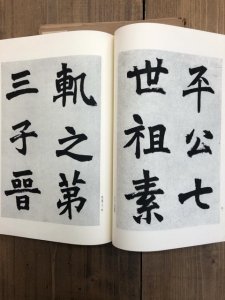 平公七
世祖素
軌之第
三子晉